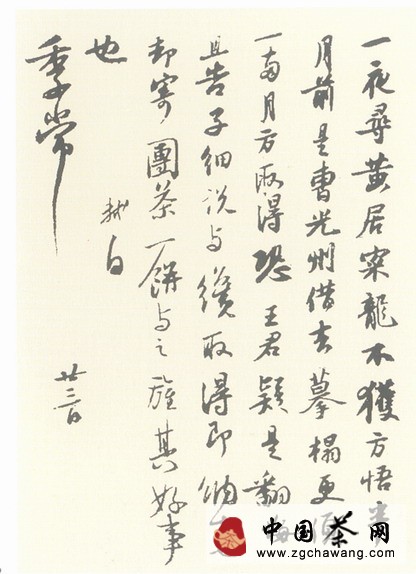 一夜尋黃居寀龍不獲方悟半
月前是曹光州借去摹搨更須
一兩月方取得恐王君疑是翻悔
且告子細說與纔取得即納
却寄團茶一餅與之旌其好事
也
軾白
季常
廿三日
中国茶网
www.zgchawang.com